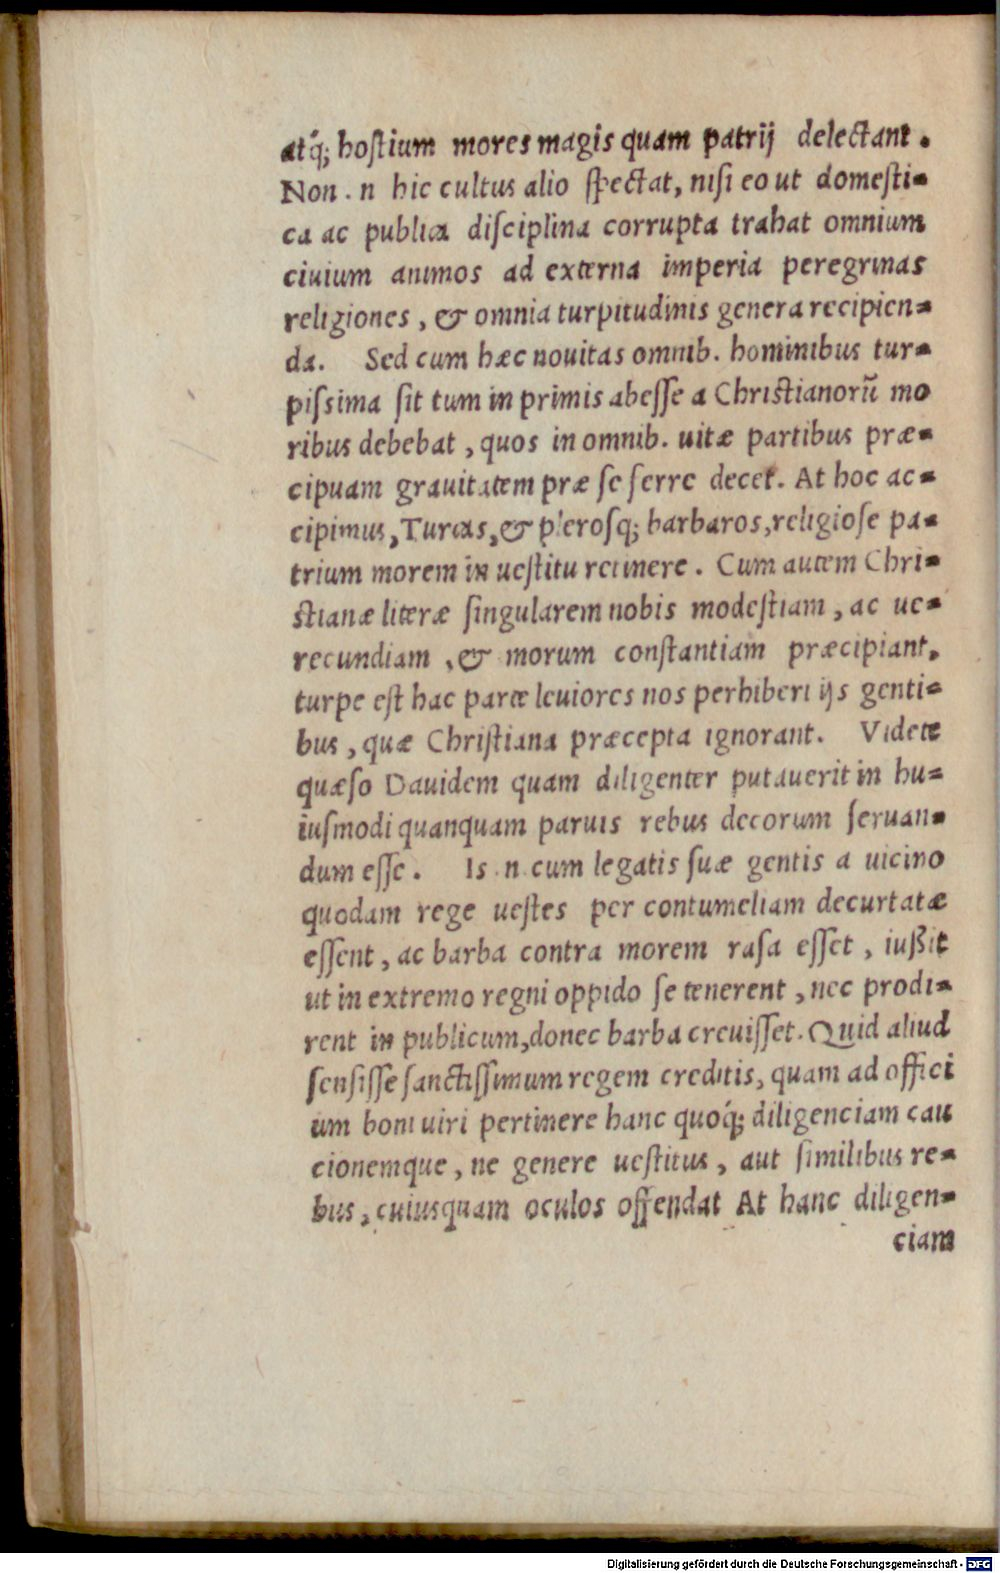 atq́; hoſtium mores magis quam patrij delectant.
Non. n hic cultus alio ſpectat, niſi eo ut domeſti-
ca ac publica diſciplina corrupta trahat omnium
ciuium animos ad externa imperia peregrinas
religiones, & omnia turpitudinis genera recipien-
da. Sed cum hæc nouitas omnib. hominibus tur-
piſsima ſit tum in primis abeſſe a Chriſtianorũ mo
ribus debebat, quos in omnib. uitæ partibus præ-
cipuam grauitatem præ ſe ferre decet. At hoc ac-
cipimus, Turcas, & pleroſq; barbaros, religioſe pa-
trium morem in ueſtitu retinere. Cum autem Chri-
ſtianæ literæ ſingularem nobis modeſtiam, ac ue-
recundiam, & morum conſtantiam præcipiant,
turpe eſt hac parte leuiores nos perhiberi ijs genti-
bus, quæ Chriſtiana præcepta ignorant. Videte
quæſo Dauidem quam diligenter putauerit in hu-
iuſmodi quanquam paruis rebus decorum ſeruan-
dum eſſe. Is .n. cum legatis ſuæ gentis a uicino
quodam rege ueſtes per contumeliam decurtatæ
eſſent, ac barba contra morem raſa eſſet, iußit
ut in extremo regni oppido ſe tenerent, nec prodi-
rent in publicum, donec barba creuiſſet. Quid aliud
ſenſiſſe ſanctiſſimum regem creditis, quam ad offici
um boni uiri pertinere hanc quoq́; diligenciam cau
cionemque, ne genere ueſtitus, aut ſimilibus re-
bus, cuiusquam oculos offendat At hanc diligen-
ciam
Digitalisierung gefördert durch die Deutsche Forschungsgemeinschaft - DFG